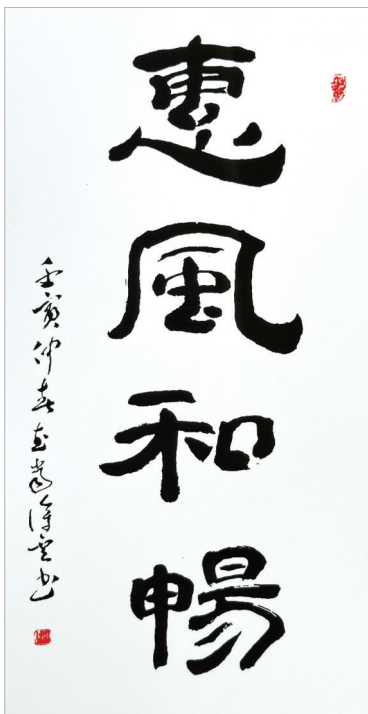 惠風和暢
壬寅仲春
書